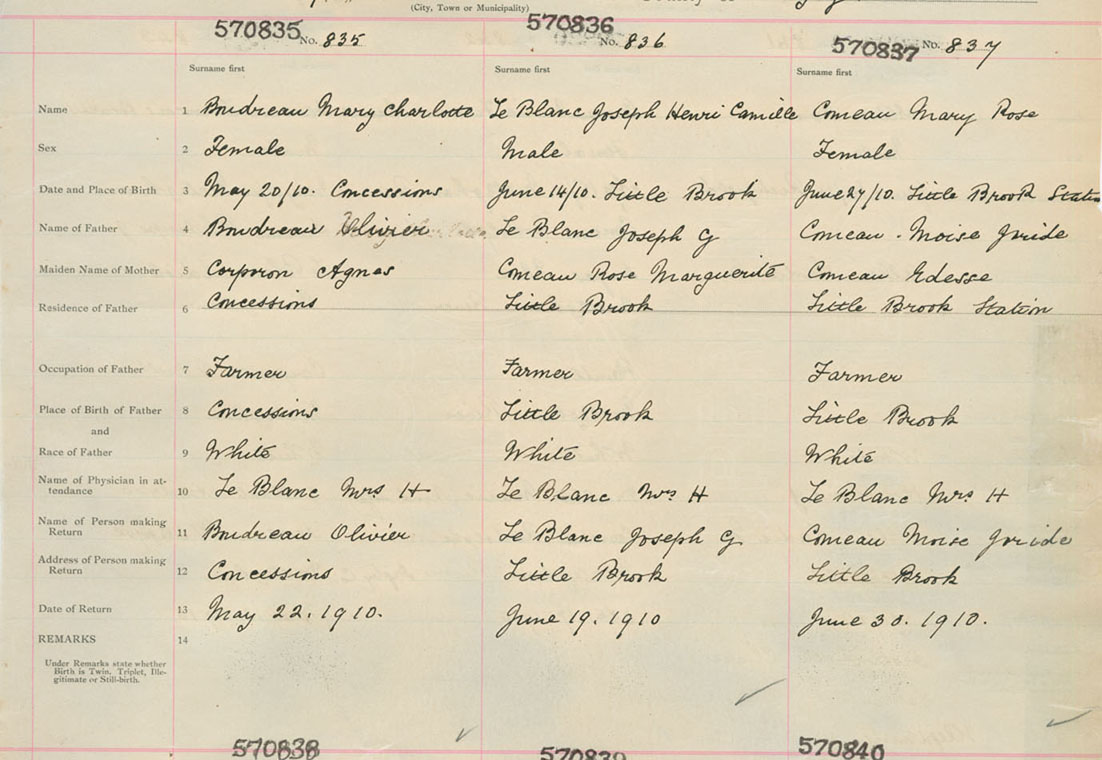 (City, Town or Municipality)
570835 No. 835 570836 No. 836 570837 No. 837
Surname first Surname first Surname first
Name 1 Boudreau Mary Charlotte Le Blanc Joseph Henri Camille Comeau Mary Rose
Sex 2 Female Male Female
Date and Place of Birth 3 May 20/10. Concessions June 14/10. Little Brook June 27/10. Little Brook Station
Name of Father 4 Boudreau Olivier Le Blanc Joseph G Comeau . Moise
Maiden Name of Mother 5 Corporon Agnes Comeau Rose Marguerite Comeau Edesse
Residence of Father 6 Concessions Little Brook Little Brook Station
Occupation of Father 7 Farmer Farmer Farmer
Place of Birth of Father 8 Concessions Little Brook Little Brook
and
Race of Father 9 White White White
Name of Physician in at-
tendance 10 Le Blanc Mrs H Le Blanc Mrs H Le Blanc Mrs H
Name of Person making
Return 11 Boudreau Olivier Le Blanc Joseph G Comeau Moise
Address of Person making
Return 12 Concessions Little Brook Little Brook
Date of Return 13 May 22. 1910. June 19. 1910 June 30. 1910.
REMARKS 14
Under Remarks state whether
Birth is Twin, Triplet, Ille-
gitimate or Still-birth.
570838 570839 570840